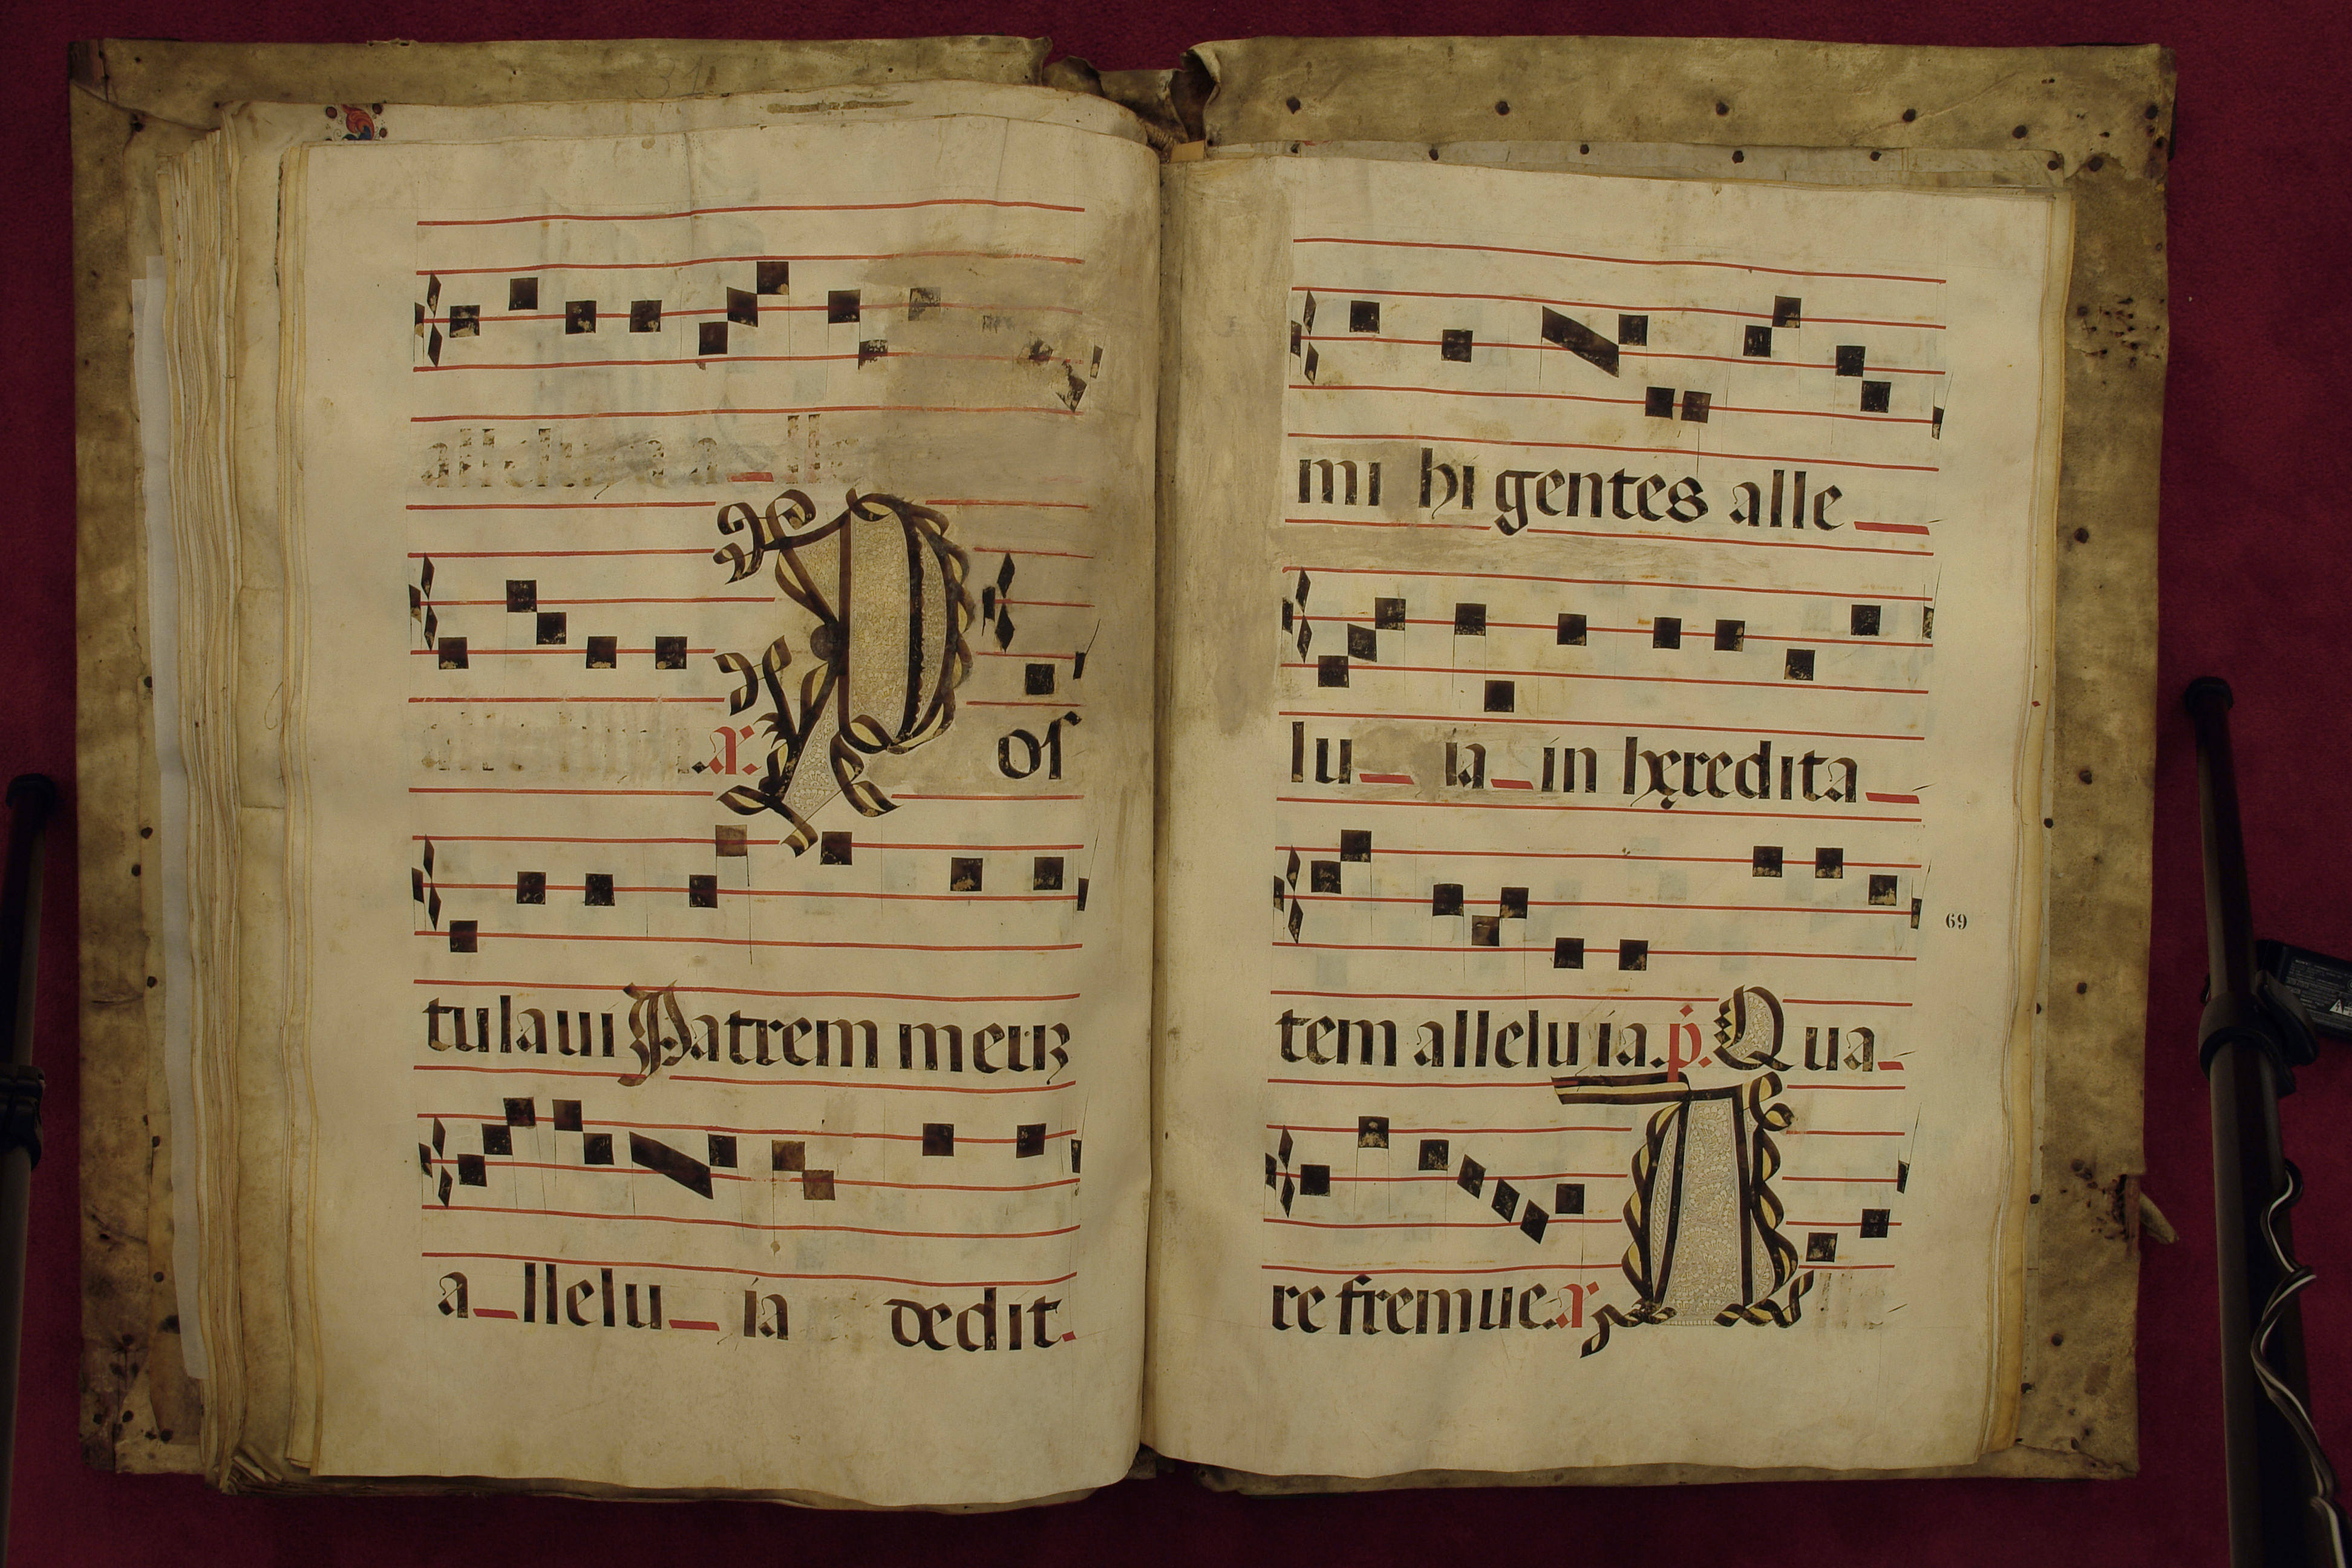 alleluia a_lle
.a. Poſ
tulaui Patrem meuz
a_llelu_ ia dedit.
mi hi gentes alle_
lu_ ia_in hęredita_
tem allelu ia. p. Qua_
re fremue. a. A lle
69